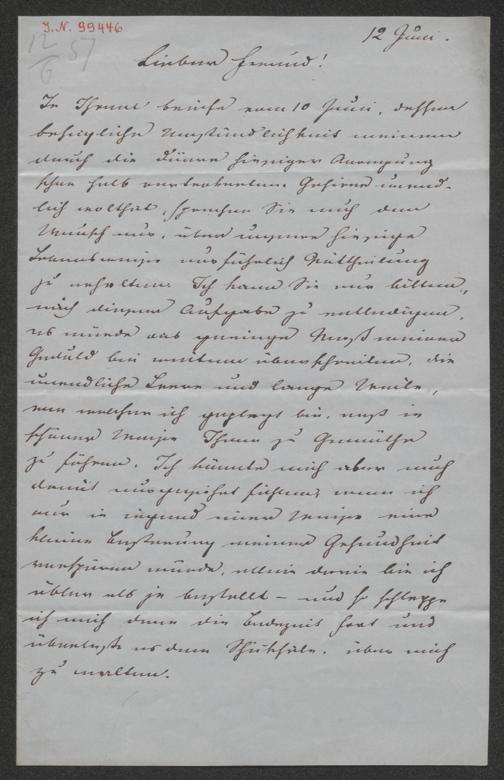 I.N. 99446
12/6 57
12 Juni.
Lieber Freund!
In Ihrem briefe vom 10 Juni, dessen
behagliche Umständlichkeit meinem
durch die dürre hiesiger
schon halb Gehirne unend-
lich wolthat, sprechen Sie mich den
Wunsch aus, über unsere hiesige
Lebensweise ausführlich Mittheilung
zu erhalten. Ich kann Sie nur bitten,
mich dieser Aufgabe zu entledigen,
es würde das geringe Maß meiner
Geduld bei weitem überschreiten, die
unendliche Leere und lange Weile,
von welcher ich geplagt bin, auf in
schöner Weise Ihnen zu Gemüthe
zu führen. Ich könnte mich aber auch
damit ausgesöhnt fühlen, wenn ich
nur in irgend einer Weise eine
kleine Besserung meiner Gesundheit
verspüren würde, allein darin bin ich
übler als je bestellt – und so schleppe
ich mich denn die Badezeit fort und
überlasse es dem Schicksale, über mich
zu walten.